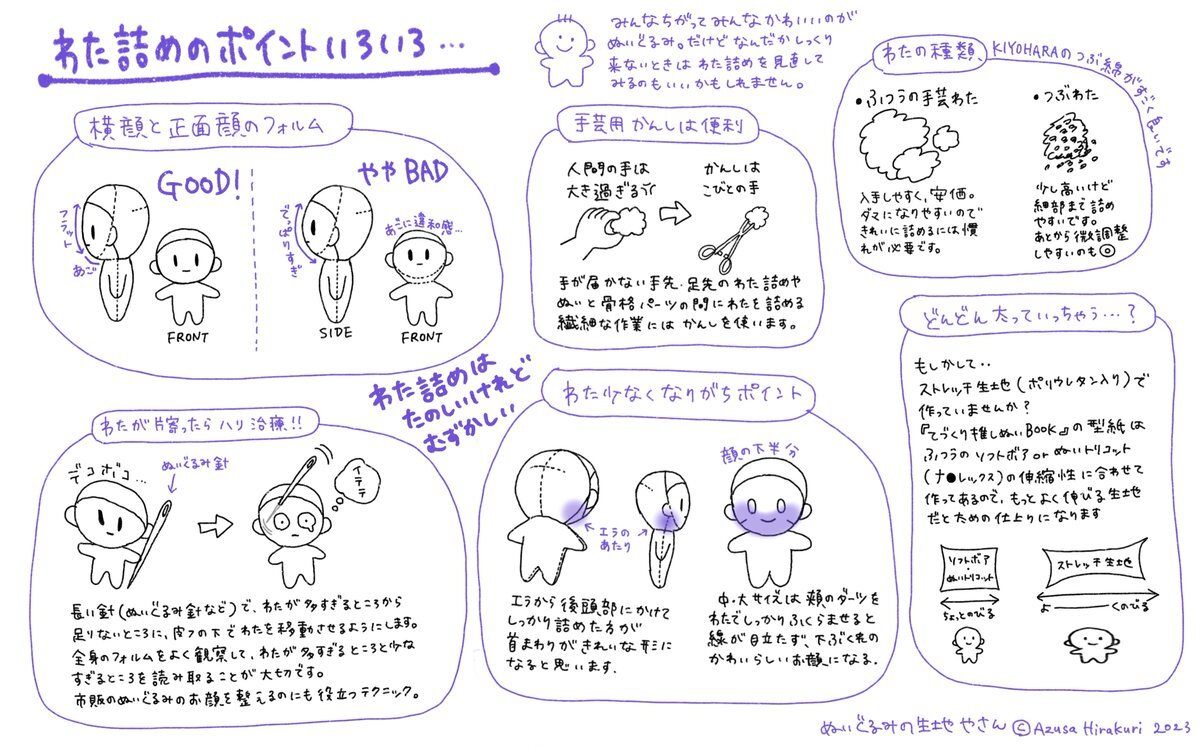 わた詰めのポイントいろいろ…
みんなちがってみんなかわいいのが
ぬいぐるみ。だけどなんだかしっくり
来ないときは わた詰めを見直して
みるのもいいかもしれません。
横顔と正面顔のフォルム
GOOD!
フラット
あご
FRONT
ややBAD
でっぱりすぎ
あごに違和感…
SIDE
FRONT
手芸用かんしは便利
人間の手は
大き過ぎる
かんしは
こびとの手
手が届かない手先・足先のわた詰めや
ぬいと骨格パーツの間にわたを詰める
繊細な作業には かんしを使います。
わたの種類、
KIYOHARAのつぶ綿がすごく良いです
•ふつうの手芸わた
入手しやすく、安価。
ダマになりやすいので
きれいに詰めるには慣
れが必要です。
•つぶわた
少し高いけど
細部まで詰め
やすいです。
あとから微調整
しやすいのも◎
わた詰めは
たのしいけれど
むずかしい
わたが片寄ったらハリ治療!!
デコボコ…
ぬいぐるみ針
イテテ
長い針(ぬいぐるみ針など)で、わたが多すぎるところから
足りないところに、皮フの下でわたを移動させるようにします。
全身のフォルムをよく観察して、わたが多すぎるところと少な
すぎるところを読み取ることが大切です。
市販のぬいぐるみのお顔を整えるのにも役立つテクニック。
わた少なくなりがちポイント
エラの
あたり
顔の下半分
エラから後頭部にかけて
しっかり詰めた方が
首まわりがきれいな形に
なると思います.
中・大サイズは頬のダーツを
わたでしっかりふくらませると
線が目立たず、下ぶくれの
かわいらしいお顔になる.
どんどん太っていっちゃう…?
もしかして・・
ストレッチ生地(ポリウレタン入り)で
作っていませんか?
『てづくり推しぬいBOOK』の型紙は
ふつうのソフトボアorぬいトリコット
(ナ●レックス)の伸縮性に合わせて
作ってあるので、もっとよく伸びる生地
だとための仕上りになります
ソフトボア
・
ぬいトリコット
ちょっとのびる
ストレッチ生地
よーーくのびる
ぬいぐるみの生地やさん ©Azusa Hirakuri 2023